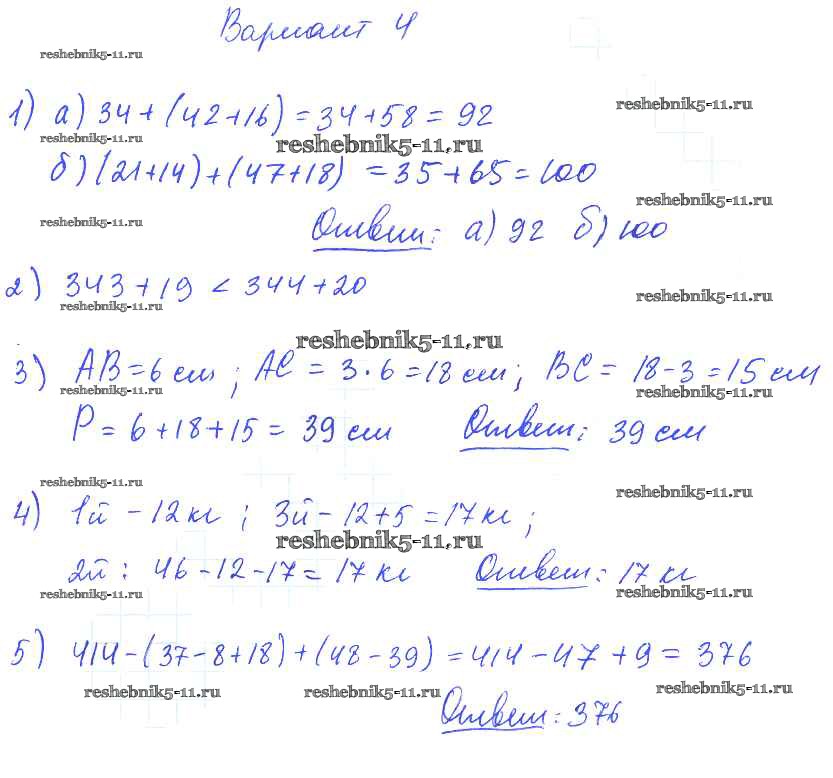 Вариант 4
reshebnik5-11.ru
1) а) 34+(42+16)=34+58=92
reshebnik5-11.ru
reshebnik5-11.ru
reshebnik5-11.ru
б) (21+14)+(47+18)=35+65=100
reshebnik5-11.ru
reshebnik5-11.ru
Ответ: а) 92 б) 100
2) 343+19 < 344+20
reshebnik5-11.ru
reshebnik5-11.ru
reshebnik5-11.ru
3) AB=6 см; AC = 3·6=18 см; BC = 18-3=15 см
reshebnik5-11.ru
reshebnik5-11.ru
P = 6+18+15 = 39 см Ответ: 39 см
reshebnik5-11.ru
reshebnik5-11.ru
4) 1й - 12 кг; 3й - 12+5=17 кг;
reshebnik5-11.ru
2й: 46-12-17= 17 кг Ответ: 17 кг
reshebnik5-11.ru
reshebnik5-11.ru
5) 414-(37-8+18)+(48-39)=414-47+9=376
reshebnik5-11.ru
reshebnik5-11.ru
reshebnik5-11.ru
Ответ: 376